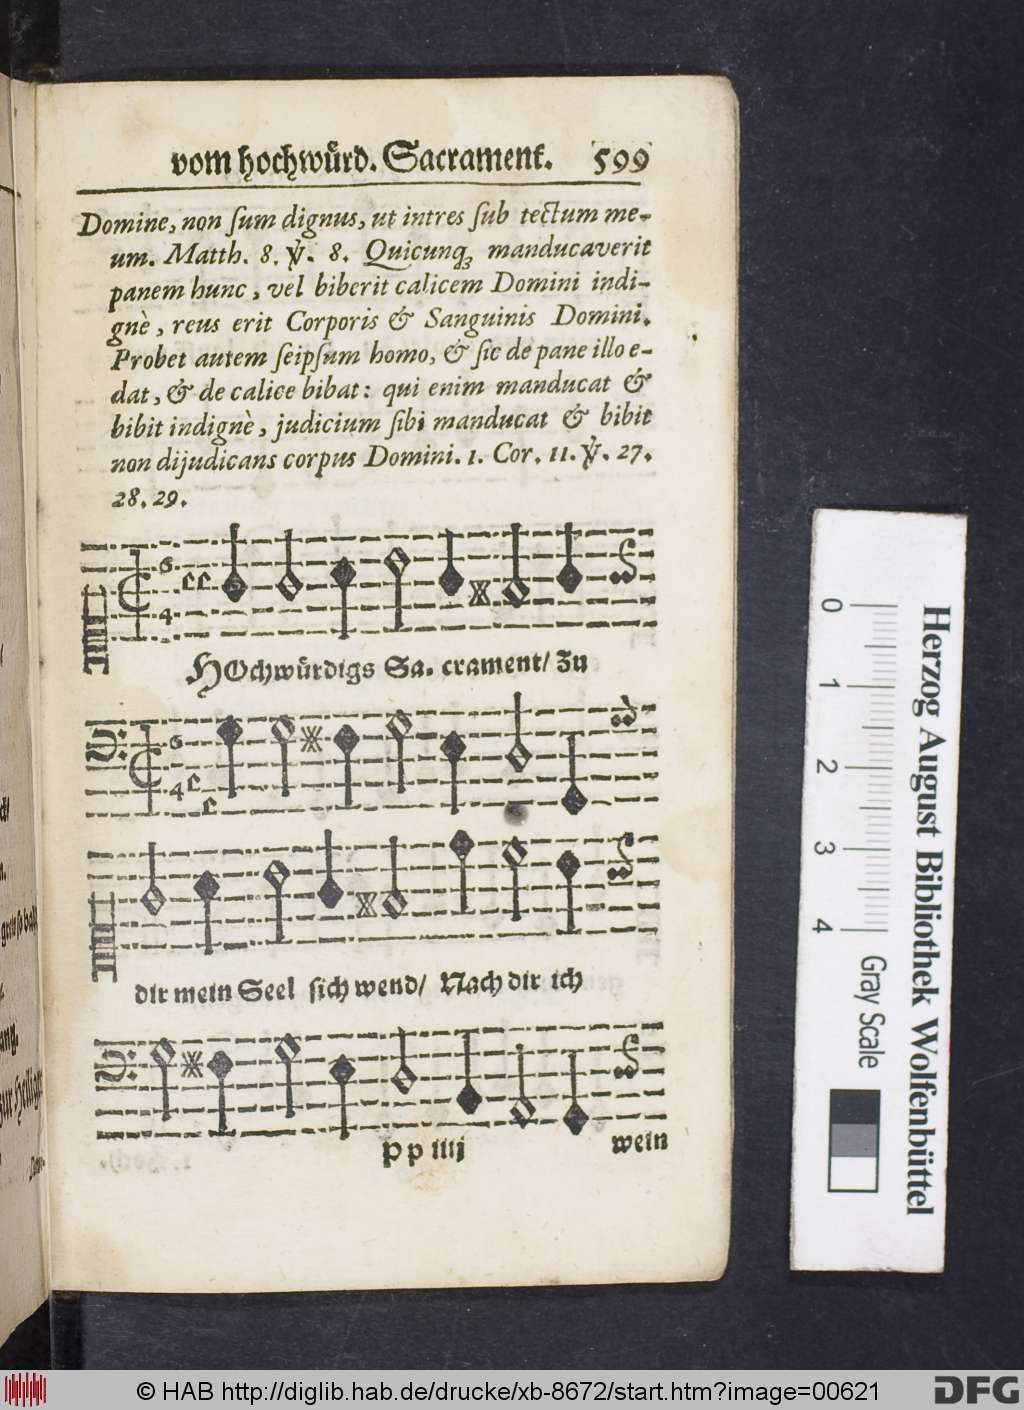 vom hochwürd. Sacrament. 599
Domine, non ſum dignus, ut intres ſub tectum me-
um. Matth. 8. ℣. 8. Quicunqꝫ manducaverit
panem hunc, vel biberit calicem Domini indi-
gnè, reus erit Corporis & Sanguinis Domini.
Probet autem ſeipſum homo, & ſic de pane illo e-
dat, & de calice bibat: qui enim manducat &
bibit indignè, judicium ſibi manducat & bibit
non dijudicans corpus Domini. 1. Cor. 11. ℣. 27.
28. 29.
6
4
HOchwürdigs Sa. crament/ Zu
6
4
dir mein Seel ſich wend/ Nach dir ich
Pp iiij wein
0 1 2 3 4 Gray Scale
Herzog August Bibliothek Wolfenbüttel
© HAB http://diglib.hab.de/drucke/xb-8672/start.htm?image=00621
DFG